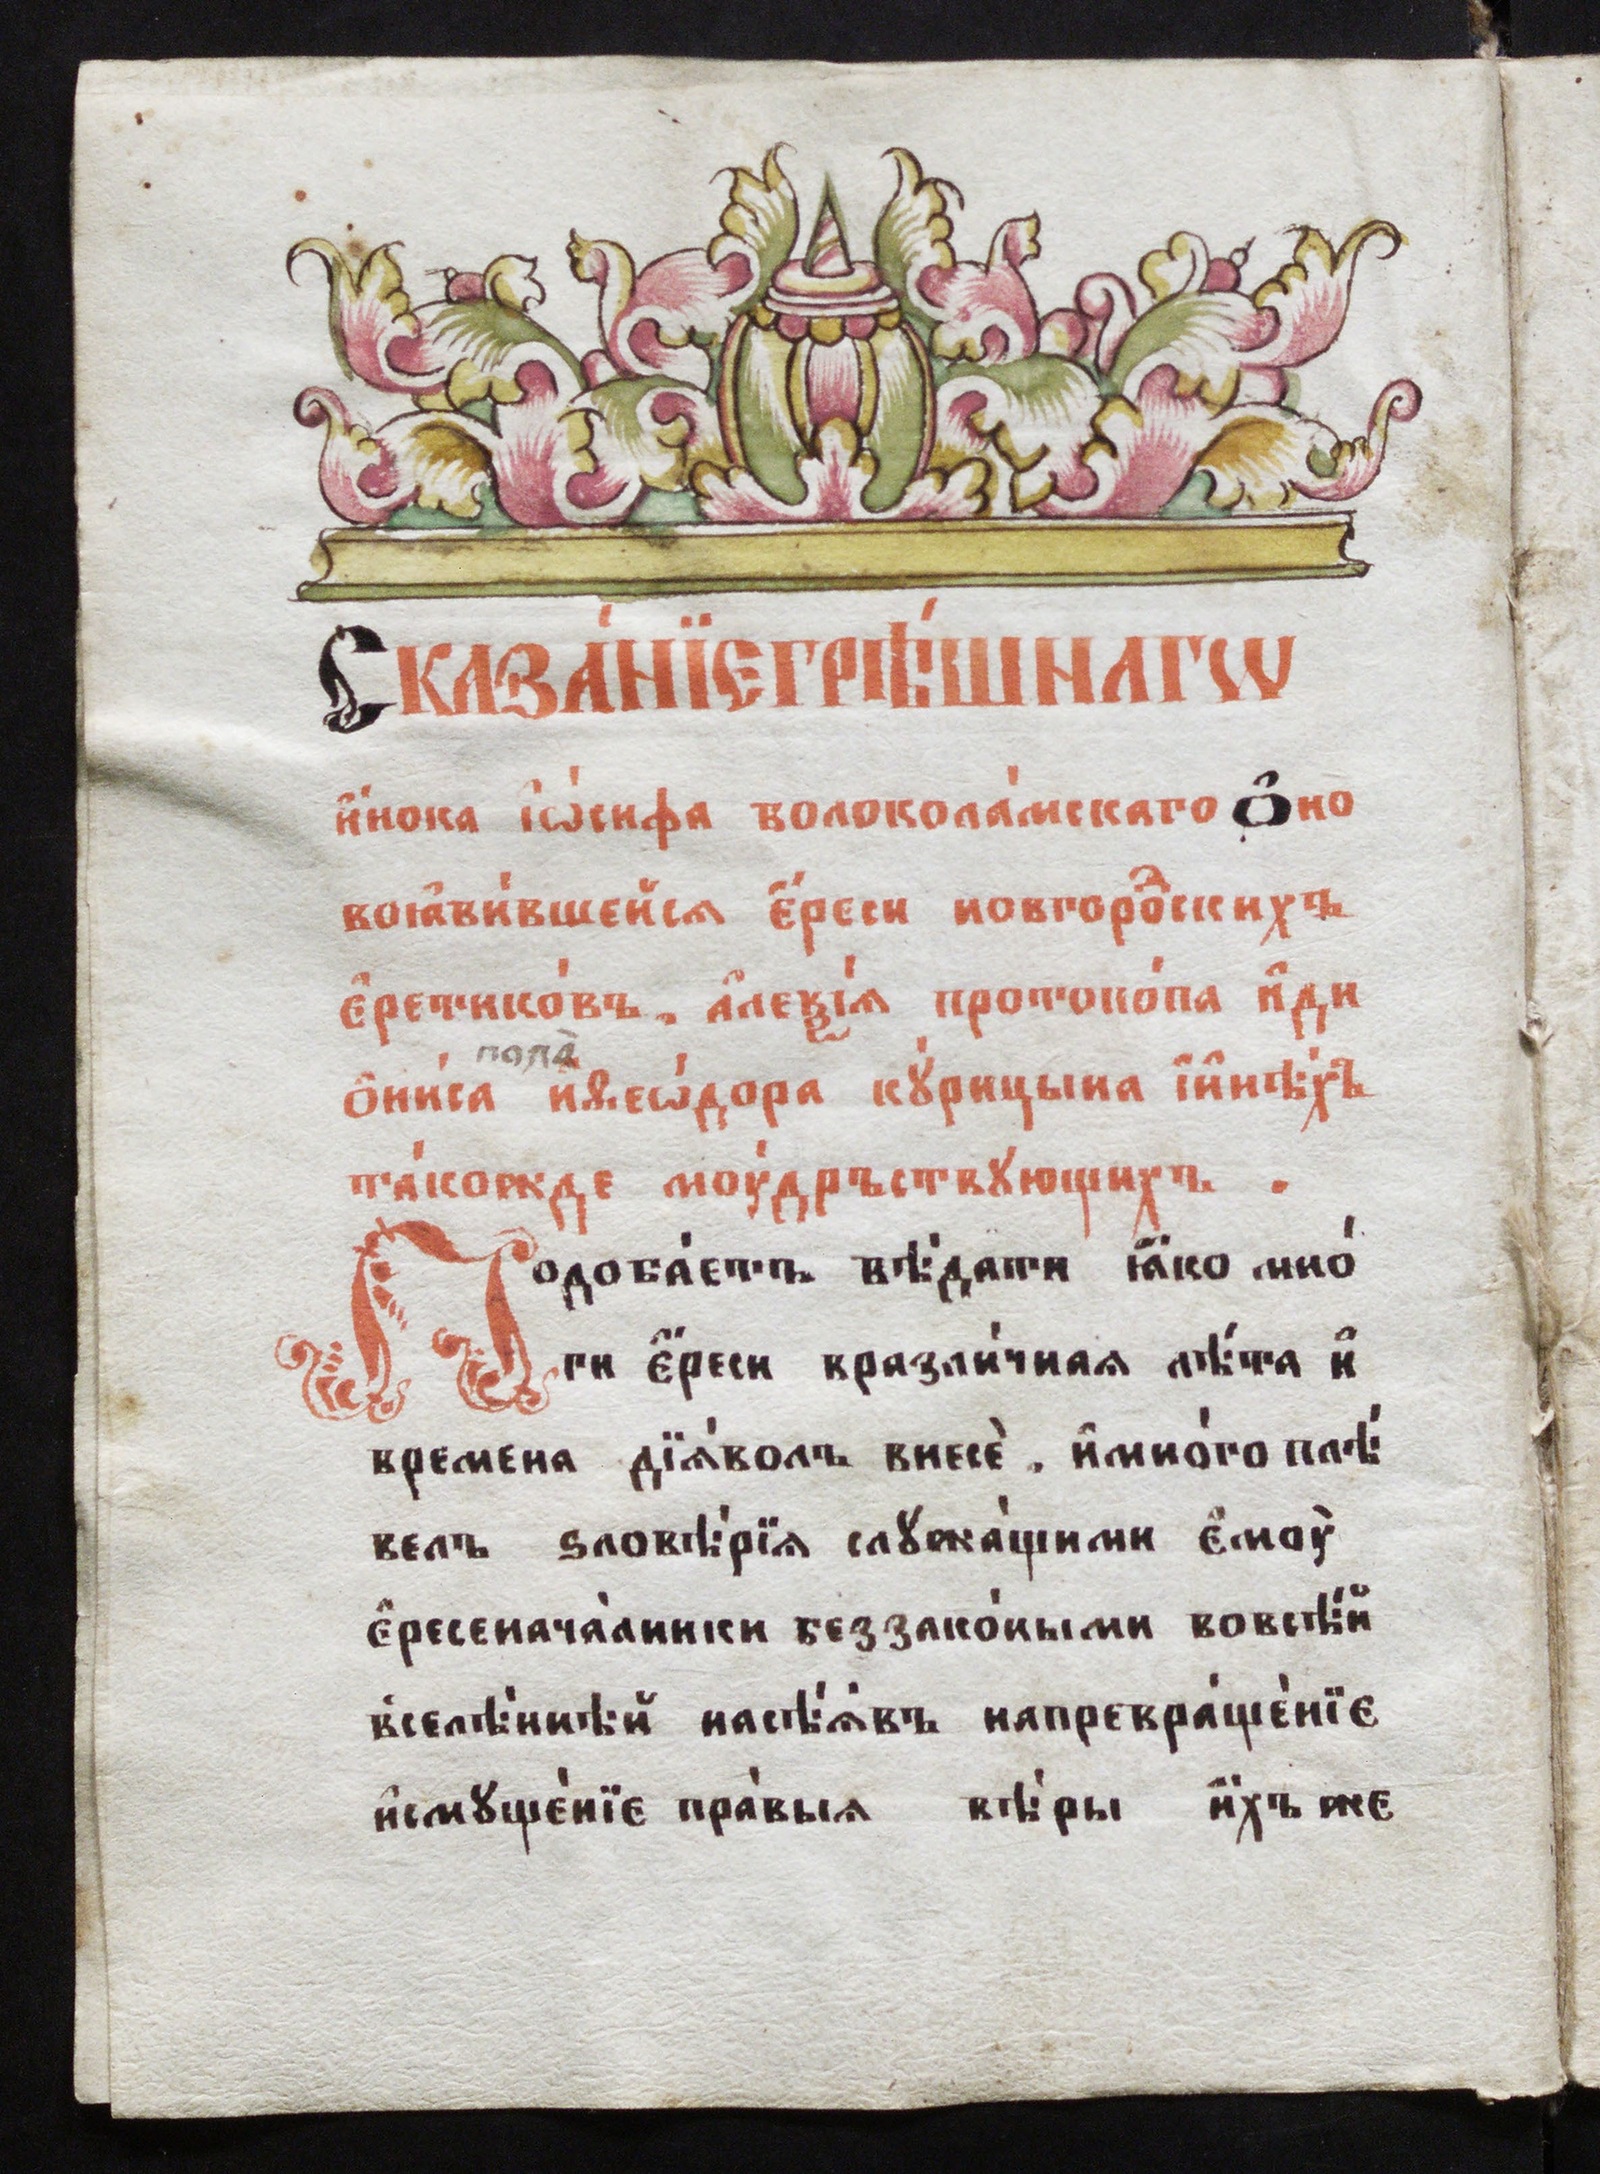 Сказа́нїе грѣ́шнагѡ
и҆́нока і҆ѡ́сифа волокола́мскаго ѻ҆ но
воꙗ҆ви́вшейсѧ є҆́реси новгоро́дскихъ
є҆ретико́въ. а҆леѯі́ѧ протопо́па и҆ ди
попа̀
ѻ҆ни́са и҆ ѳеѡ́дора кꙋ́рицына і҆ и҆нѣ́хъ
та́кожде моу́дръствꙋющихъ .
Подоба́етъ вѣ́дати ꙗ҆́ко мно́
ги є҆́реси в разли́чнаѧ лѣ́та и҆
времена дїѧ́волъ внесѐ. и҆ мно́го плѣ́
велъ ѕловѣ́рїѧ слꙋжа́щими є҆моу̀
є҆ресенача́лники беззако́ными во всѣ́й
вселѣ́ннѣй насѣ́ѧвъ на превраще́нїе
и҆ смꙋще́нїе пра́выѧ вѣ́ры и҆́хъ же